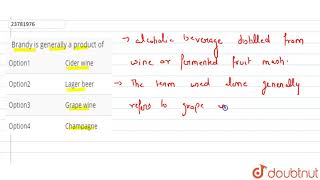 23781976
Brandy is generally a product of
Option1 Cider wine
Option2 Lager beer
Option3 Grape wine
Option4 Champagne
→ alcoholic beverage distilled from
wine or fermented fruit mash.
→ The term used alone generally
refers to grape
doubtnut